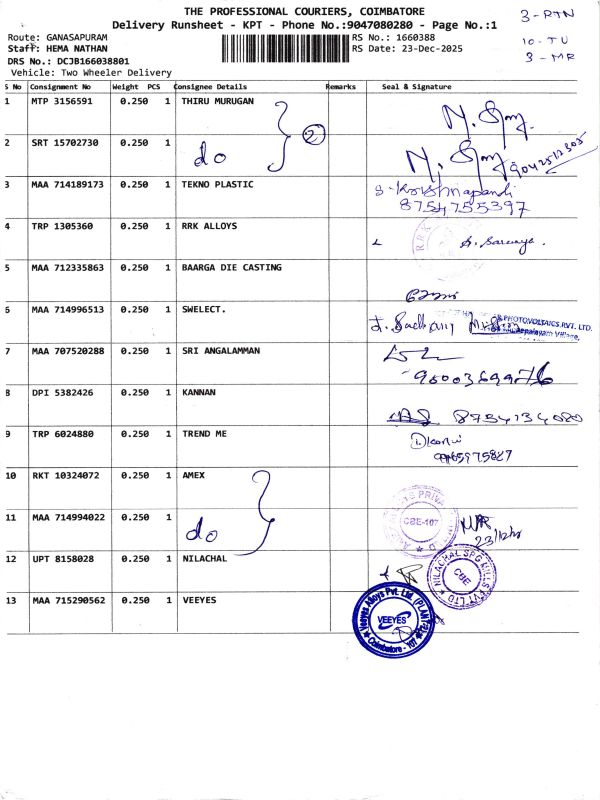 THE PROFESSIONAL COURIERS, COIMBATORE
Delivery Runsheet - KPT - Phone No.:9047080280 - Page No.:1
3 - RTN
10 - TU
3 - MR
Route: GANASAPURAM
RS No.: 1660388
Staff: HEMA NATHAN
RS Date: 23-Dec-2025
DRS No.: DCJB166038801
Vehicle: Two Wheeler Delivery
S No Consignment No Weight PCS Consignee Details Remarks Seal & Signature
1 MTP 3156591 0.250 1 THIRU MURUGAN
2 SRT 15702730 0.250 1 do 2
9042512305
3 MAA 714189173 0.250 1 TEKNO PLASTIC
8754755397
4 TRP 1305360 0.250 1 RRK ALLOYS
RRK
5 MAA 712335863 0.250 1 BAARGA DIE CASTING
6 MAA 714996513 0.250 1 SWELECT.
PHOTOVOLTAICS PVT. LTD.
Village,
7 MAA 707520288 0.250 1 SRI ANGALAMMAN
8 DPI 5382426 0.250 1 KANNAN
8754134080
9 TRP 6024880 0.250 1 TREND ME
10 RKT 10324072 0.250 1 AMEX
11 MAA 714994022 0.250 1 do
CBE-107
12 UPT 8158028 0.250 1 NILACHAL
NILACHAL SPG MILLS PVT LTD
CBE
13 MAA 715290562 0.250 1 VEEYES
Veeyes Alloys Pvt. Ltd.
VEEYES
Coimbatore